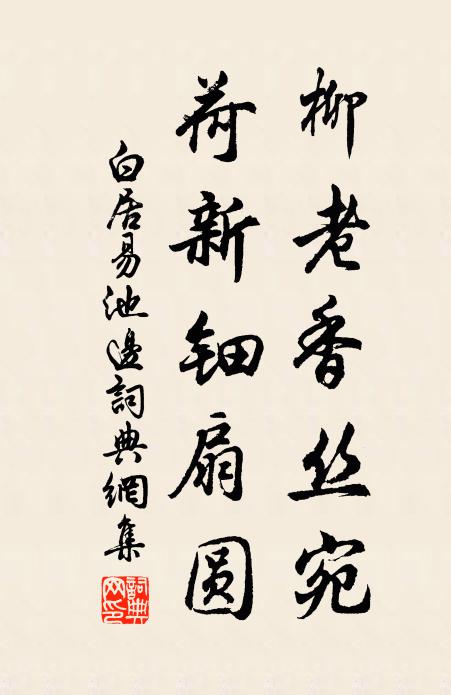 柳老香丝宛
荷新钿扇圆
白居易池邊詞典網集
詞典网印